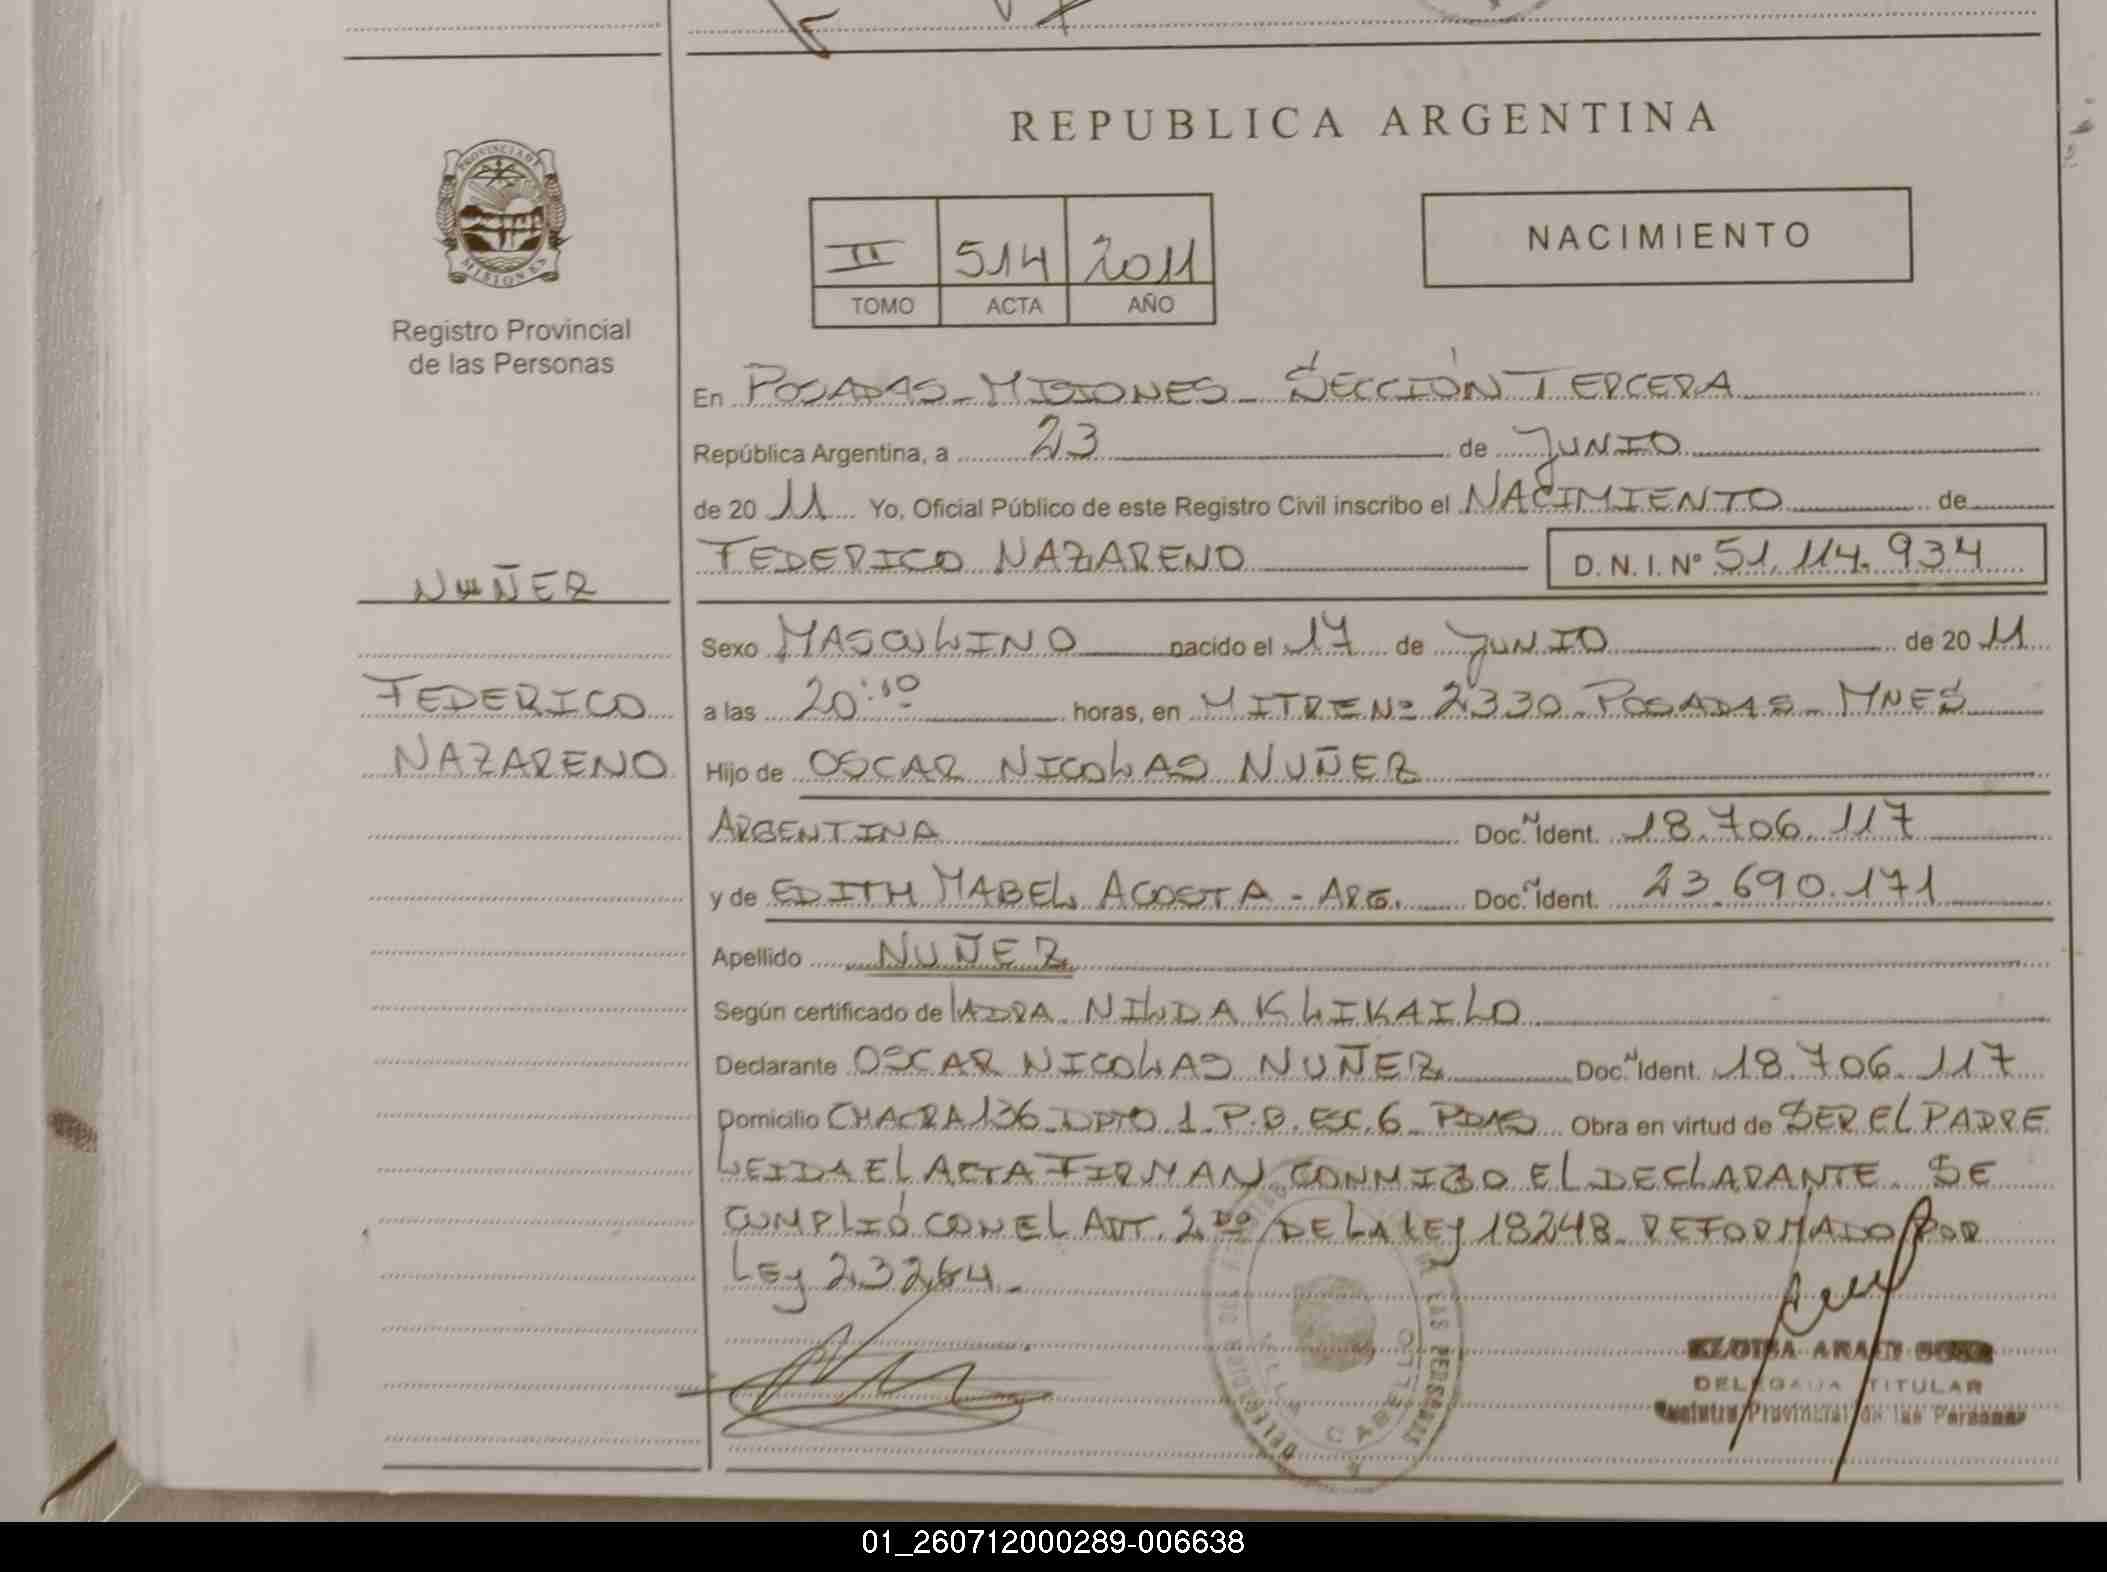 REPUBLICA ARGENTINA
PROVINCIA DE
MISIONES
Registro Provincial
de las Personas
II 514 2011
TOMO ACTA AÑO
NACIMIENTO
En POSADAS - MISIONES - SECCIÓN TERCERA
República Argentina, a 23 de JUNIO
de 20 11 Yo, Oficial Público de este Registro Civil inscribo el NACIMIENTO de
FEDERICO NAZARENO D. N. I. Nº 51.114.934
NUÑEZ
FEDERICO
NAZARENO
Sexo MASCULINO nacido el 17 de JUNIO de 20 11
a las 20:10 horas, en MITRE Nº 2330 - POSADAS - MNES
Hijo de OSCAR NICOLAS NUÑEZ
ARGENTINA Doc. N Ident. 18.706.117
y de EDITH MABEL ACOSTA - ARG. Doc. N Ident. 23.690.171
Apellido NUÑEZ
Según certificado de LA DRA. NILDA KLIKAILO
Declarante OSCAR NICOLAS NUÑEZ Doc. N Ident. 18.706.117
Domicilio CHACRA 136 - DPTO 1 - P.B. ESC. 6 - PDAS Obra en virtud de SER EL PADRE
LEIDA EL ACTA FIRMAN CONMIGO EL DECLARANTE. SE
CUMPLIÓ CON EL ART. 2do DE LA LEY 18248 REFORMADO POR
LEY 23264.-
VILLA CABELLO
DELEGADA TITULAR
Registro Provincial de las Personas
01_260712000289-006638